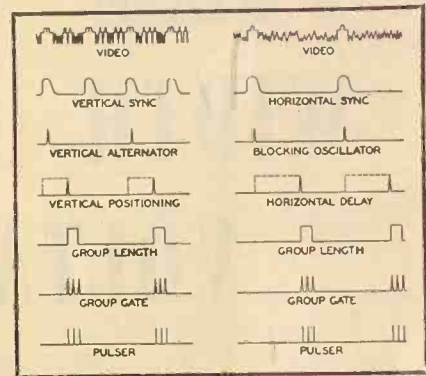 VIDEO
VERTICAL SYNC
VERTICAL ALTERNATOR
VERTICAL POSITIONING
GROUP LENGTH
GROUP GATE
PULSER
VIDEO
HORIZONTAL SYNC
BLOCKING OSCILLATOR
HORIZONTAL DELAY
GROUP LENGTH
GROUP GATE
PULSER